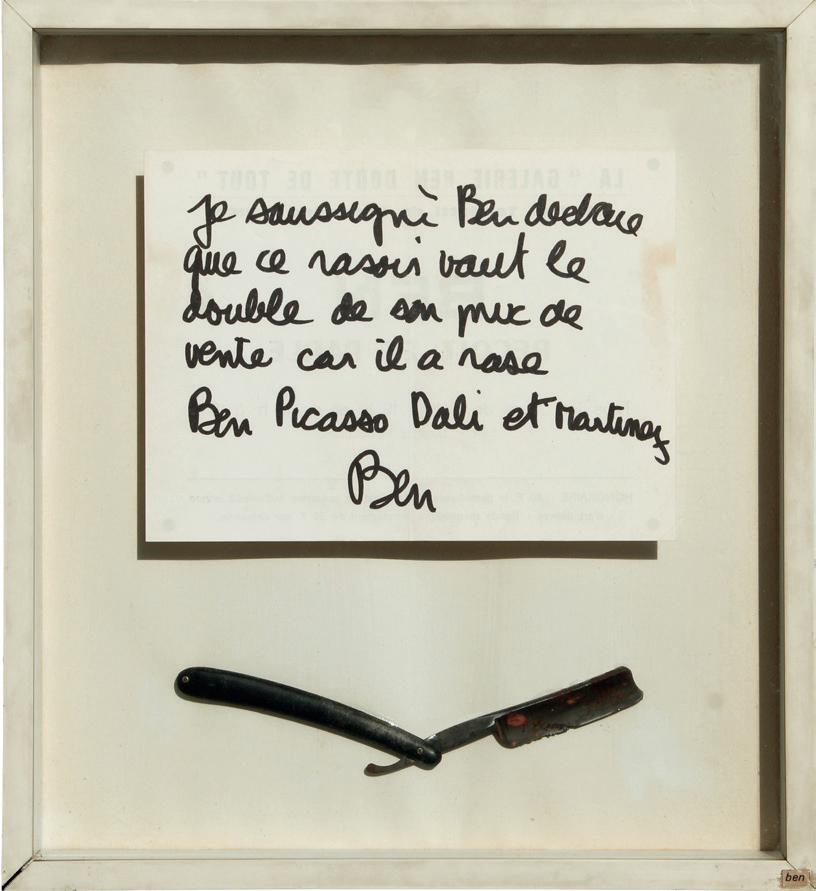 LA " GALERIE BEN DOUTE DE TOUT "
je soussignè Ben declare
que ce rasoir vaut le
double de son prix de
vente car il a rase
Ben Picasso Dali et Martinez
Ben
ben